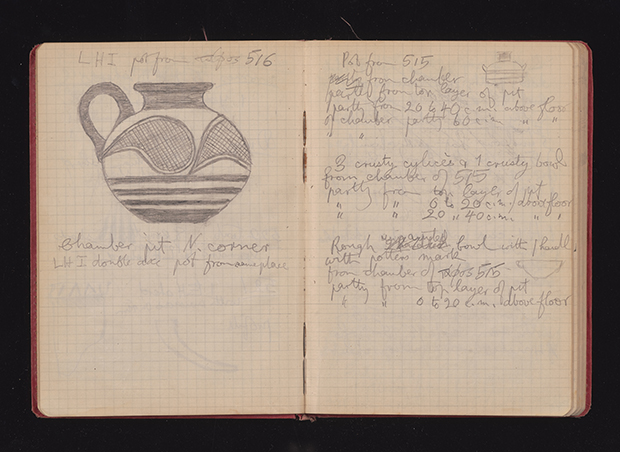 LHI pot from 516
Chamber pit N. corner
LHI double axe pot from same place
Pot from 515
from chamber
partly from top layer of pit
partly from 20 to 40 c.m. above floor
of chamber partly 60 c.m. " "
" "
3 crusty cylices & 1 crusty bowl
from chamber of 515
partly from top layer of pit
" " 0 to 20 c.m. above floor
" " 20 " 40 c.m. " "
unpainted
Rough bowl with 1 handle
with potters mark
from chamber of 515
partly from top layer of pit
" " 0 to 20 c.m. above floor